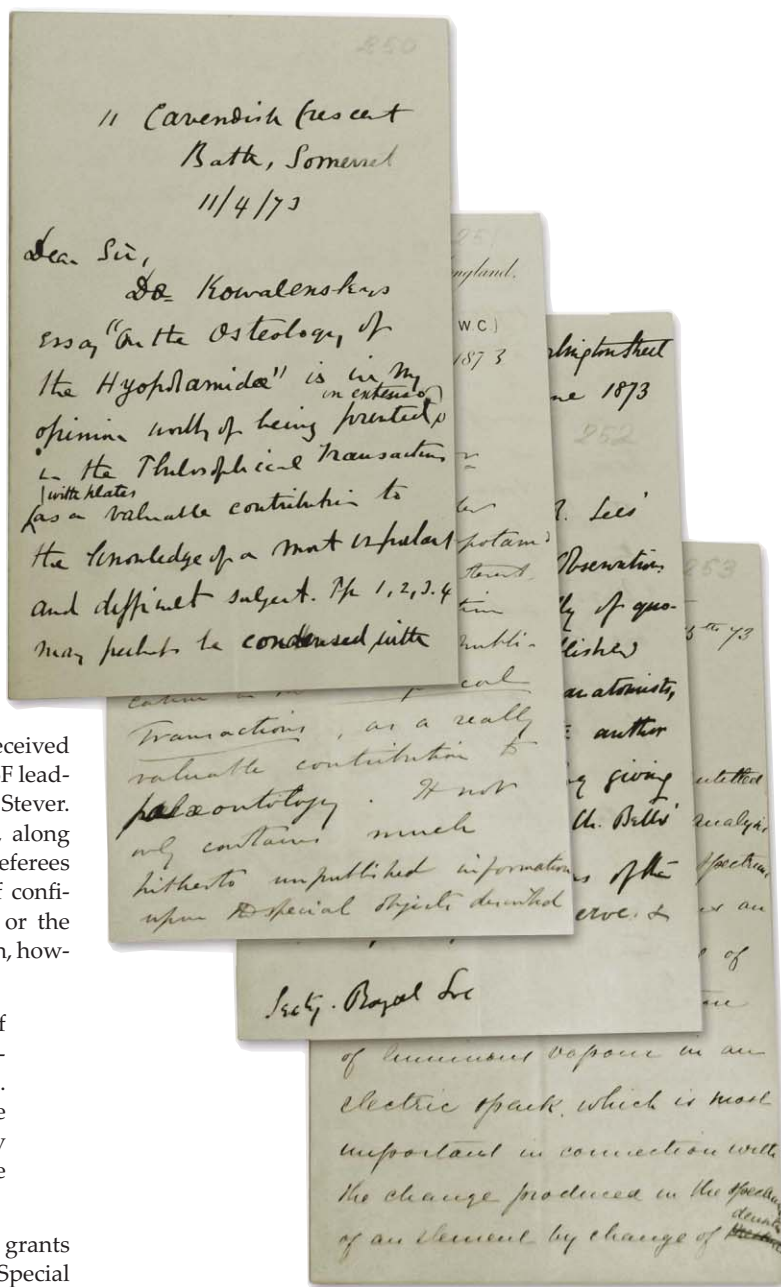 250
11 Cavendish Crescent
Bath, Somerset
11/4/73
Dear Sir,
Dr. Kowalevskys
essay "On the Osteology of
the Hyopotamidæ" is in my
opinion worthy of being printed in extenso
in the Philosophical Transactions
(with plates)
as a valuable contribution to
the knowledge of a most important
and difficult subject. Pp 1, 2, 3. 4
may perhaps be condensed with
251
ngland.
W.C.)
1873
potam
publi-
Transactions, as a really
valuable contribution to
palæontology. It not
only contains much
hitherto unpublished information
upon the special objects described
lington Street
ne 1873
252
R. Lees'
Observation
ly of quo-
lished
anatomists,
author
giving
Bells'
s of the
erve. &
Secty. Royal Soc
253
5th 73
ntitled
analysis
spectrum
as an
of
of luminous vapour in an
electric spark, which is most
important in connection with
the change produced in the spectrum
of an element by change of
eceived
F lead-
Stever.
, along
eferees
f confi-
or the
n, how-
f
-
.
e
y
e
grants
Special